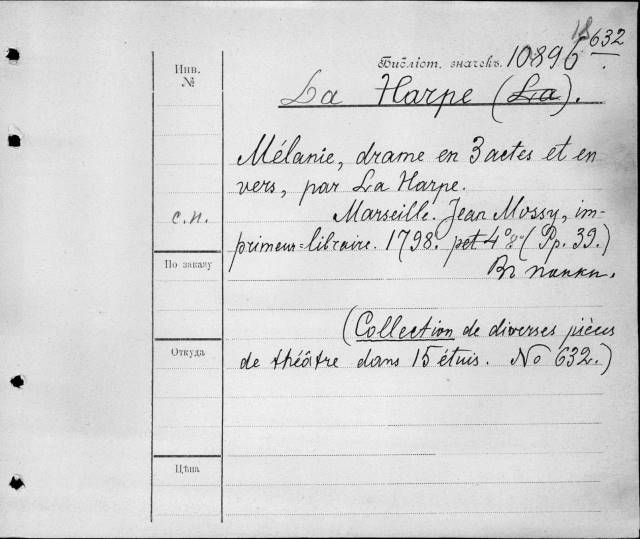 18
632
Инв.
№
Библіот. значекъ. 10896
La Harpe (La).
Mélanie, drame en 3 actes et en
vers, par La Harpe.
с.п.
Marseille. Jean Mossy, im-
primeur=libraire. 1798. pet 4° 8° (Pp. 39.)
По заказу
Въ папкѣ.
(Collection de diverses pièces
Откуда
de théâtre dans 15 étuis. No 632.)
Цѣна